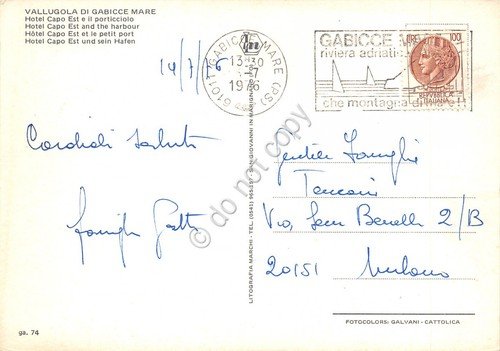 VALLUGOLA DI GABICCE MARE
Hotel Capo Est e il porticciolo
Hotel Capo Est and the harbour
Hôtel Capo Est et le petit port
Hotel Capo Est und sein Hafen
14/7/76
61011 GABICCE MARE (PS)
13-30
1976
GABICCE
riviera adriatic
che montagna di
LIRE 100
REPVBBLICA
ITALIANA
Cordiali saluti
famiglia
gentile famiglia
Via, Sem Benelli 2/B
20151 Milano
LITOGRAFIA MARCHI - TEL. (0541)
SAN GIOVANNI IN MARIGNANO
© do not copy
ga. 74
FOTOCOLORS: GALVANI - CATTOLICA